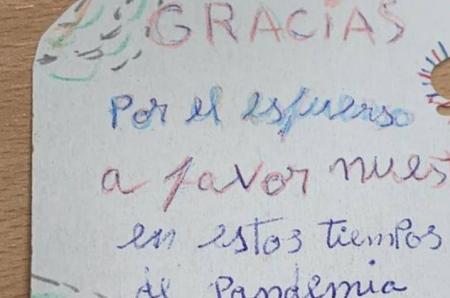 GRACIAS
Por el esfuerso
a favor nues
en estos tiempos
de Pandemia